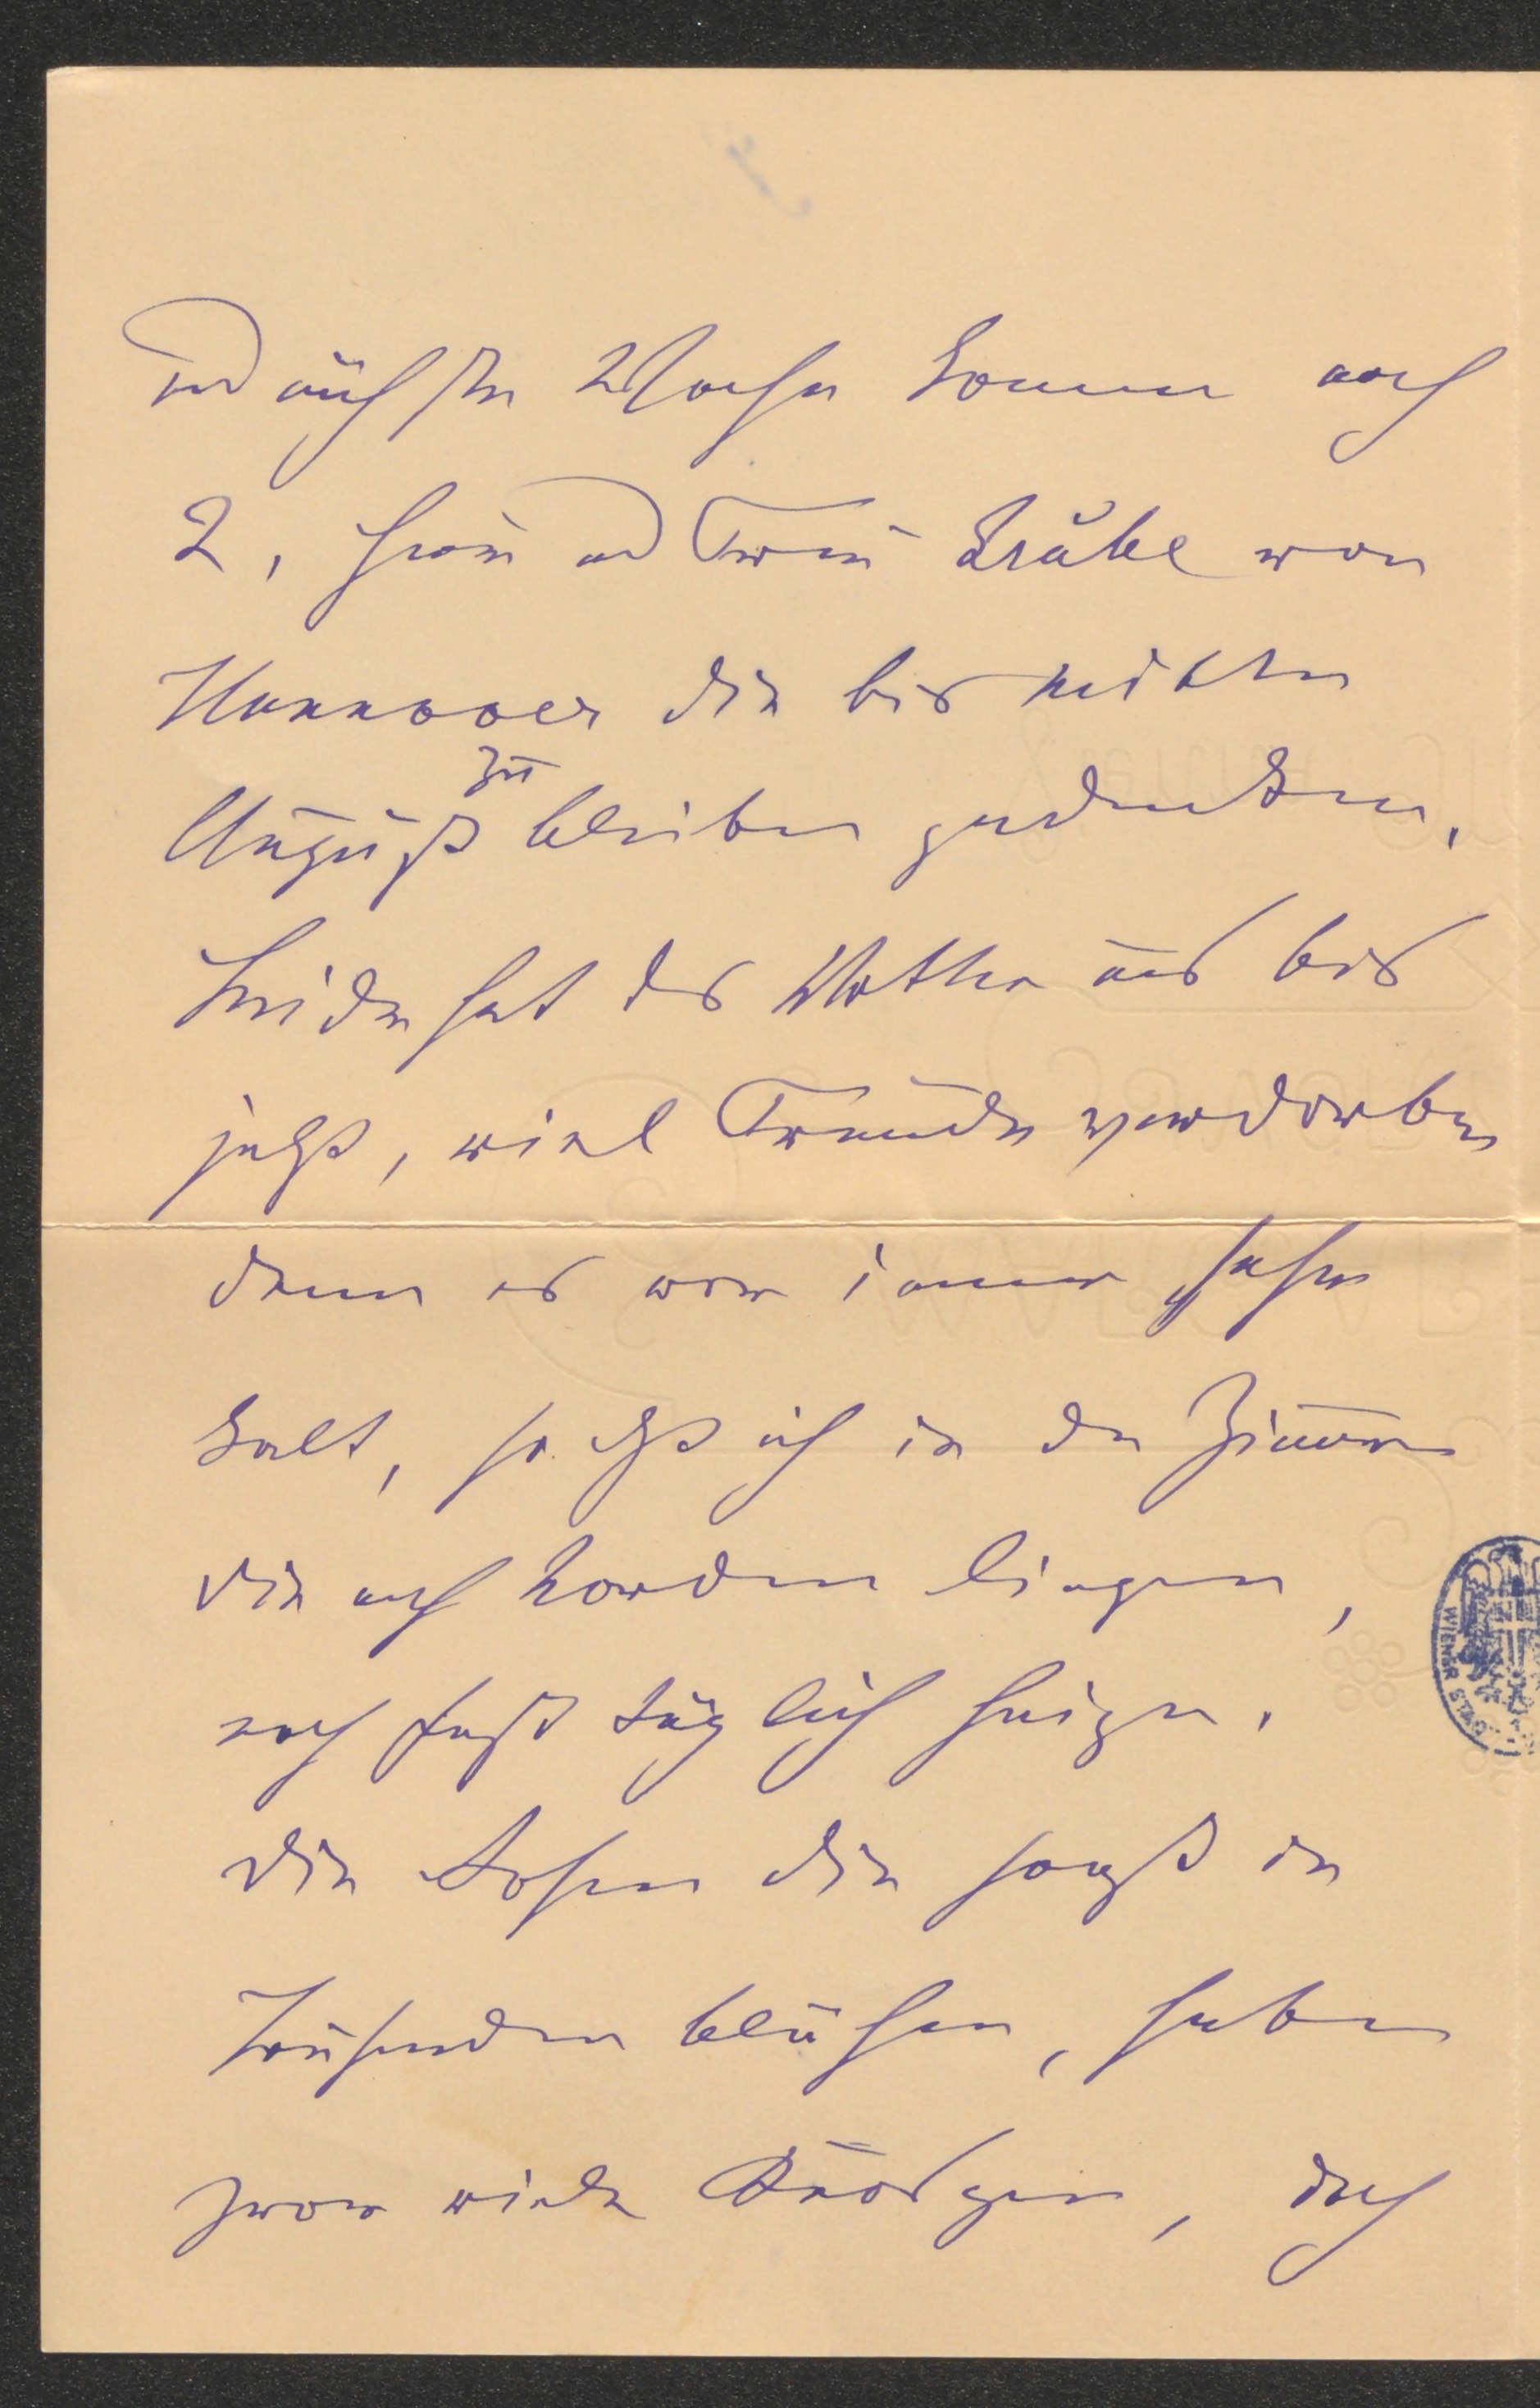 und nächste Woche kommen noch
2, Herr und Frau Grube von
Hannover die bis mitte
August zu bleiben gedenken.
Leider hat das Wetter uns bis
jetzt, viel Freude verdorben
denn es war immer sehr
kalt, so daß ich in den Zimmern
die nach Norden liegen,
noch fast täglich heize.
Die Rosen die sonst in
Tausenden blühen, haben
zwar viele Knospen, doch
WIENER STADT